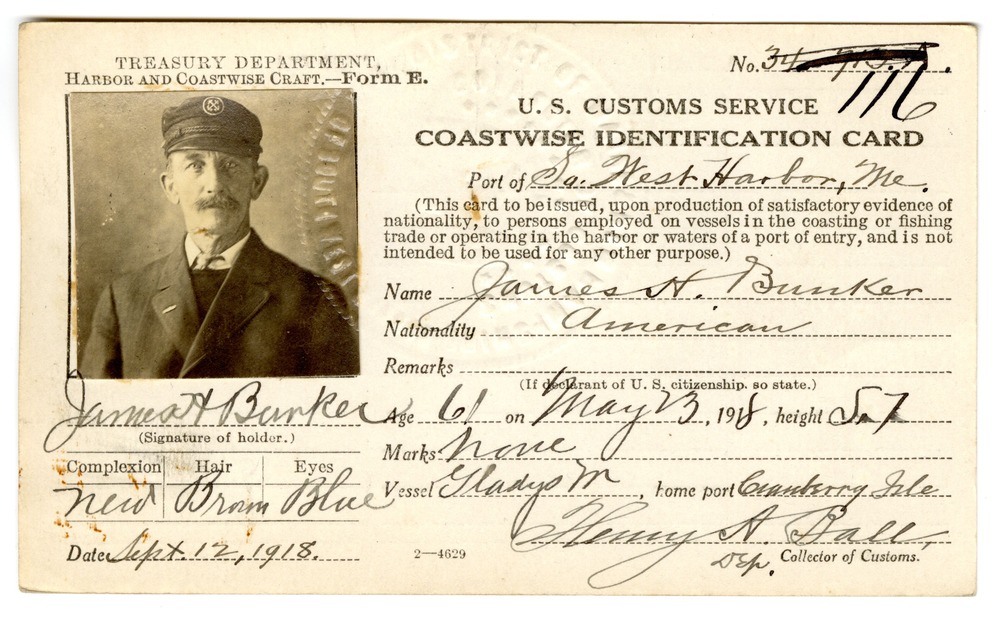 TREASURY DEPARTMENT,
HARBOR AND COASTWISE CRAFT.—FORM E.
No. 116
U. S. CUSTOMS SERVICE
COASTWISE IDENTIFICATION CARD
Port of So. West Harbor, Me.
(This card to be issued, upon production of satisfactory evidence of
nationality, to persons employed on vessels in the coasting or fishing
trade or operating in the harbor or waters of a port of entry, and is not
intended to be used for any other purpose.)
Name James H. Bunker
Nationality American
Remarks
(If declarant of U. S. citizenship, so state.)
Age 61 on May 23, 1918, height 5.7
Marks None
Vessel Gladys M, home port Cranberry Isle
Henry A. Ball,
Dep. Collector of Customs.
James H Bunker
(Signature of holder.)
Complexion Hair Eyes
Med Brown Blue
Date Sept. 12, 1918.
2—4629